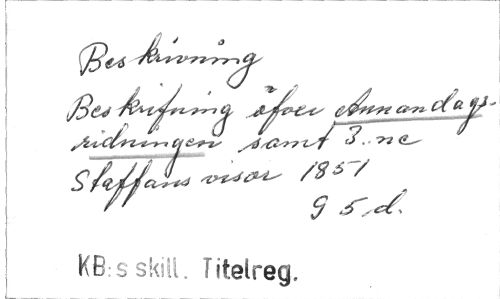 Beskrivning
Beskrifning öfver Annandags-
ridningen samt 3..ne
Staffans visor 1851
G 5 d.
KB:s skill. Titelreg.